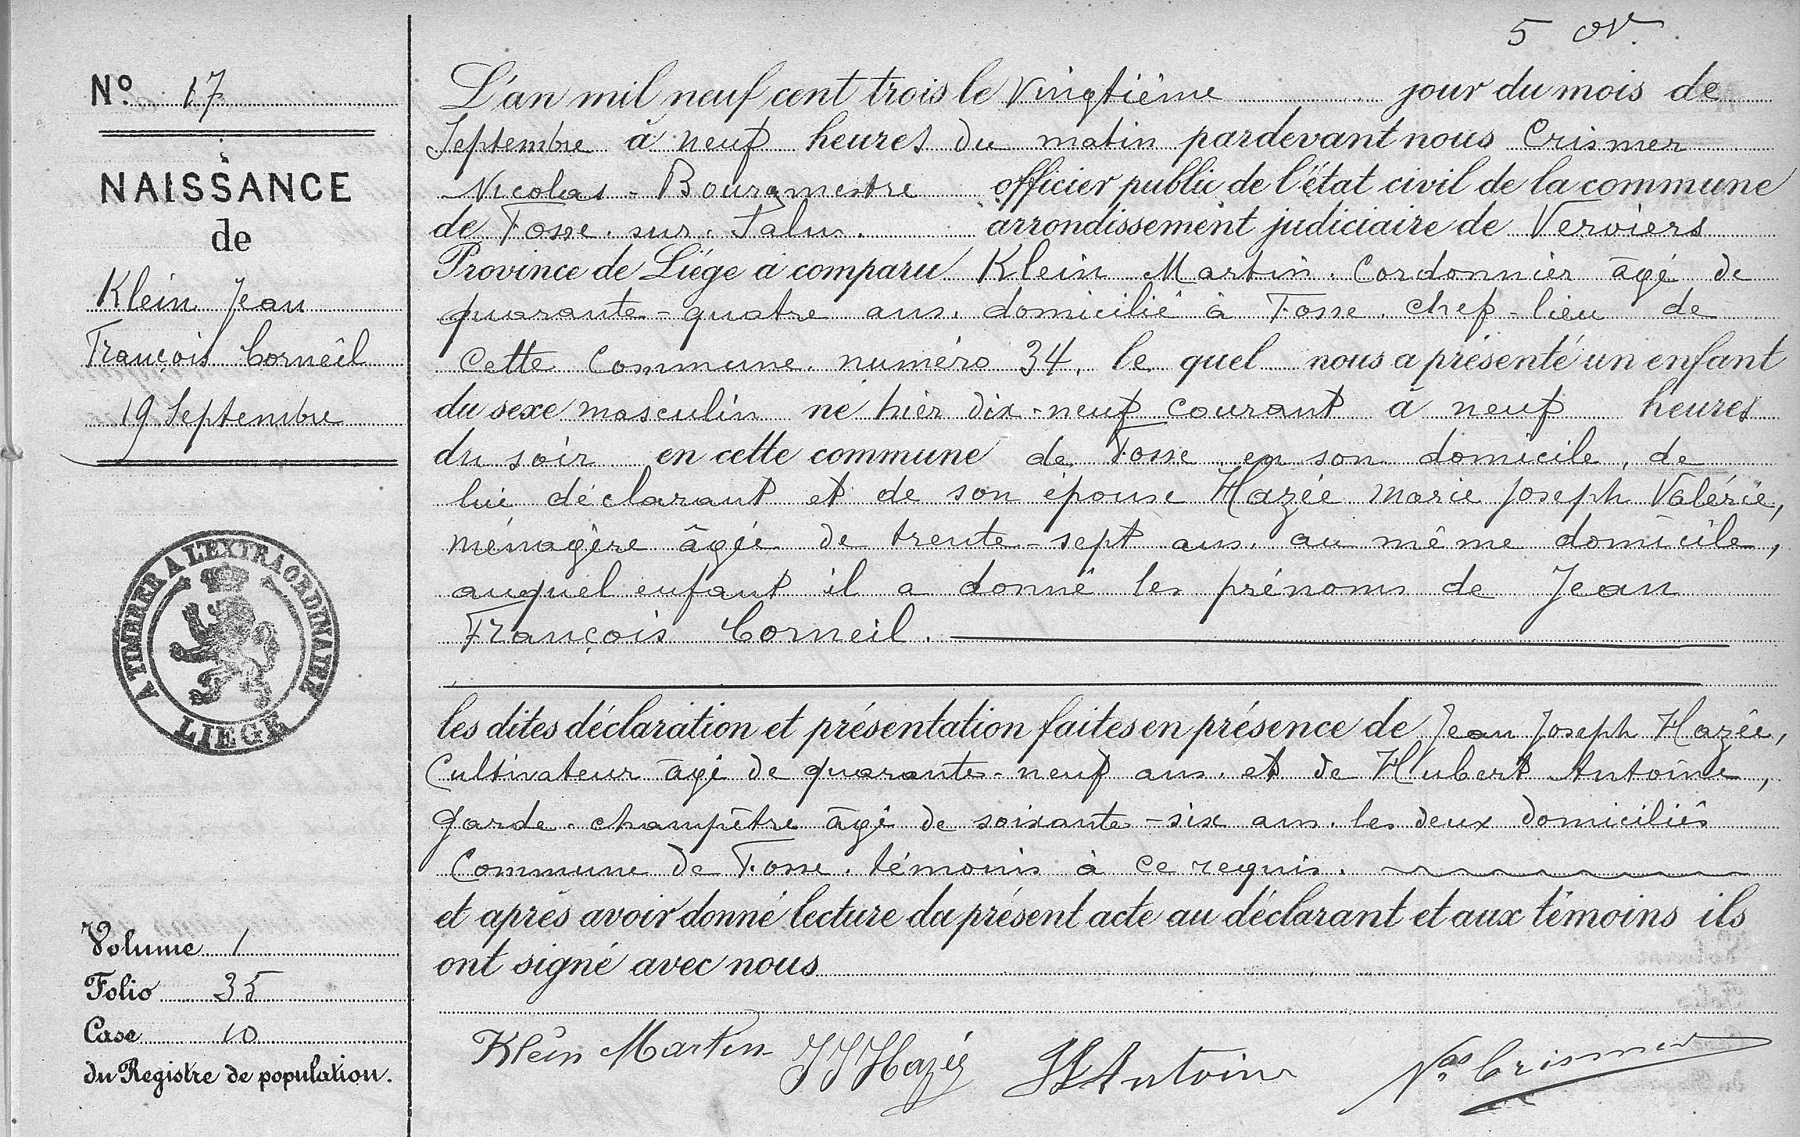 5 ov.
No 17
NAISSANCE
de
Klein Jean
François Corneil
19 Septembre
A TIMBRER A L'EXTRAORDINAIRE
LIEGE
Volume 1
Folio 35
Case 10
du Registre de population.
L'an mil neuf cent trois le vingtième jour du mois de
Septembre à neuf heures du matin pardevant nous Crismer
Nicolas - Bourgmestre officier public de l'état civil de la commune
de Fosse. sur. Salm. arrondissement judiciaire de Verviers
Province de Liége a comparu Klein Martin. Cordonnier âgé de
quarante-quatre ans. domicilié à Fosse. chef-lieu de
cette commune. numéro 34, le quel nous a présenté un enfant
du sexe masculin né hier dix-neuf courant à neuf heures
du soir en cette commune de Fosse en son domicile, de
lui déclarant et de son épouse Hazée Marie Joseph Valérie,
ménagère âgée de trente-sept ans. au même domicile,
auquel enfant il a donné les prénoms de Jean
François Corneil.
les dites déclaration et présentation faites en présence de Jean Joseph Hazée,
Cultivateur âgé de quarante-neuf ans. et de Hubert Antoine,
garde-champêtre âgé de soixante-six ans. les deux domiciliés
Commune de Fosse. témoins à ce requis.
et après avoir donné lecture du présent acte au déclarant et aux témoins ils
ont signé avec nous
Klein Martin JJ Hazée H Antoine Nas Crismer